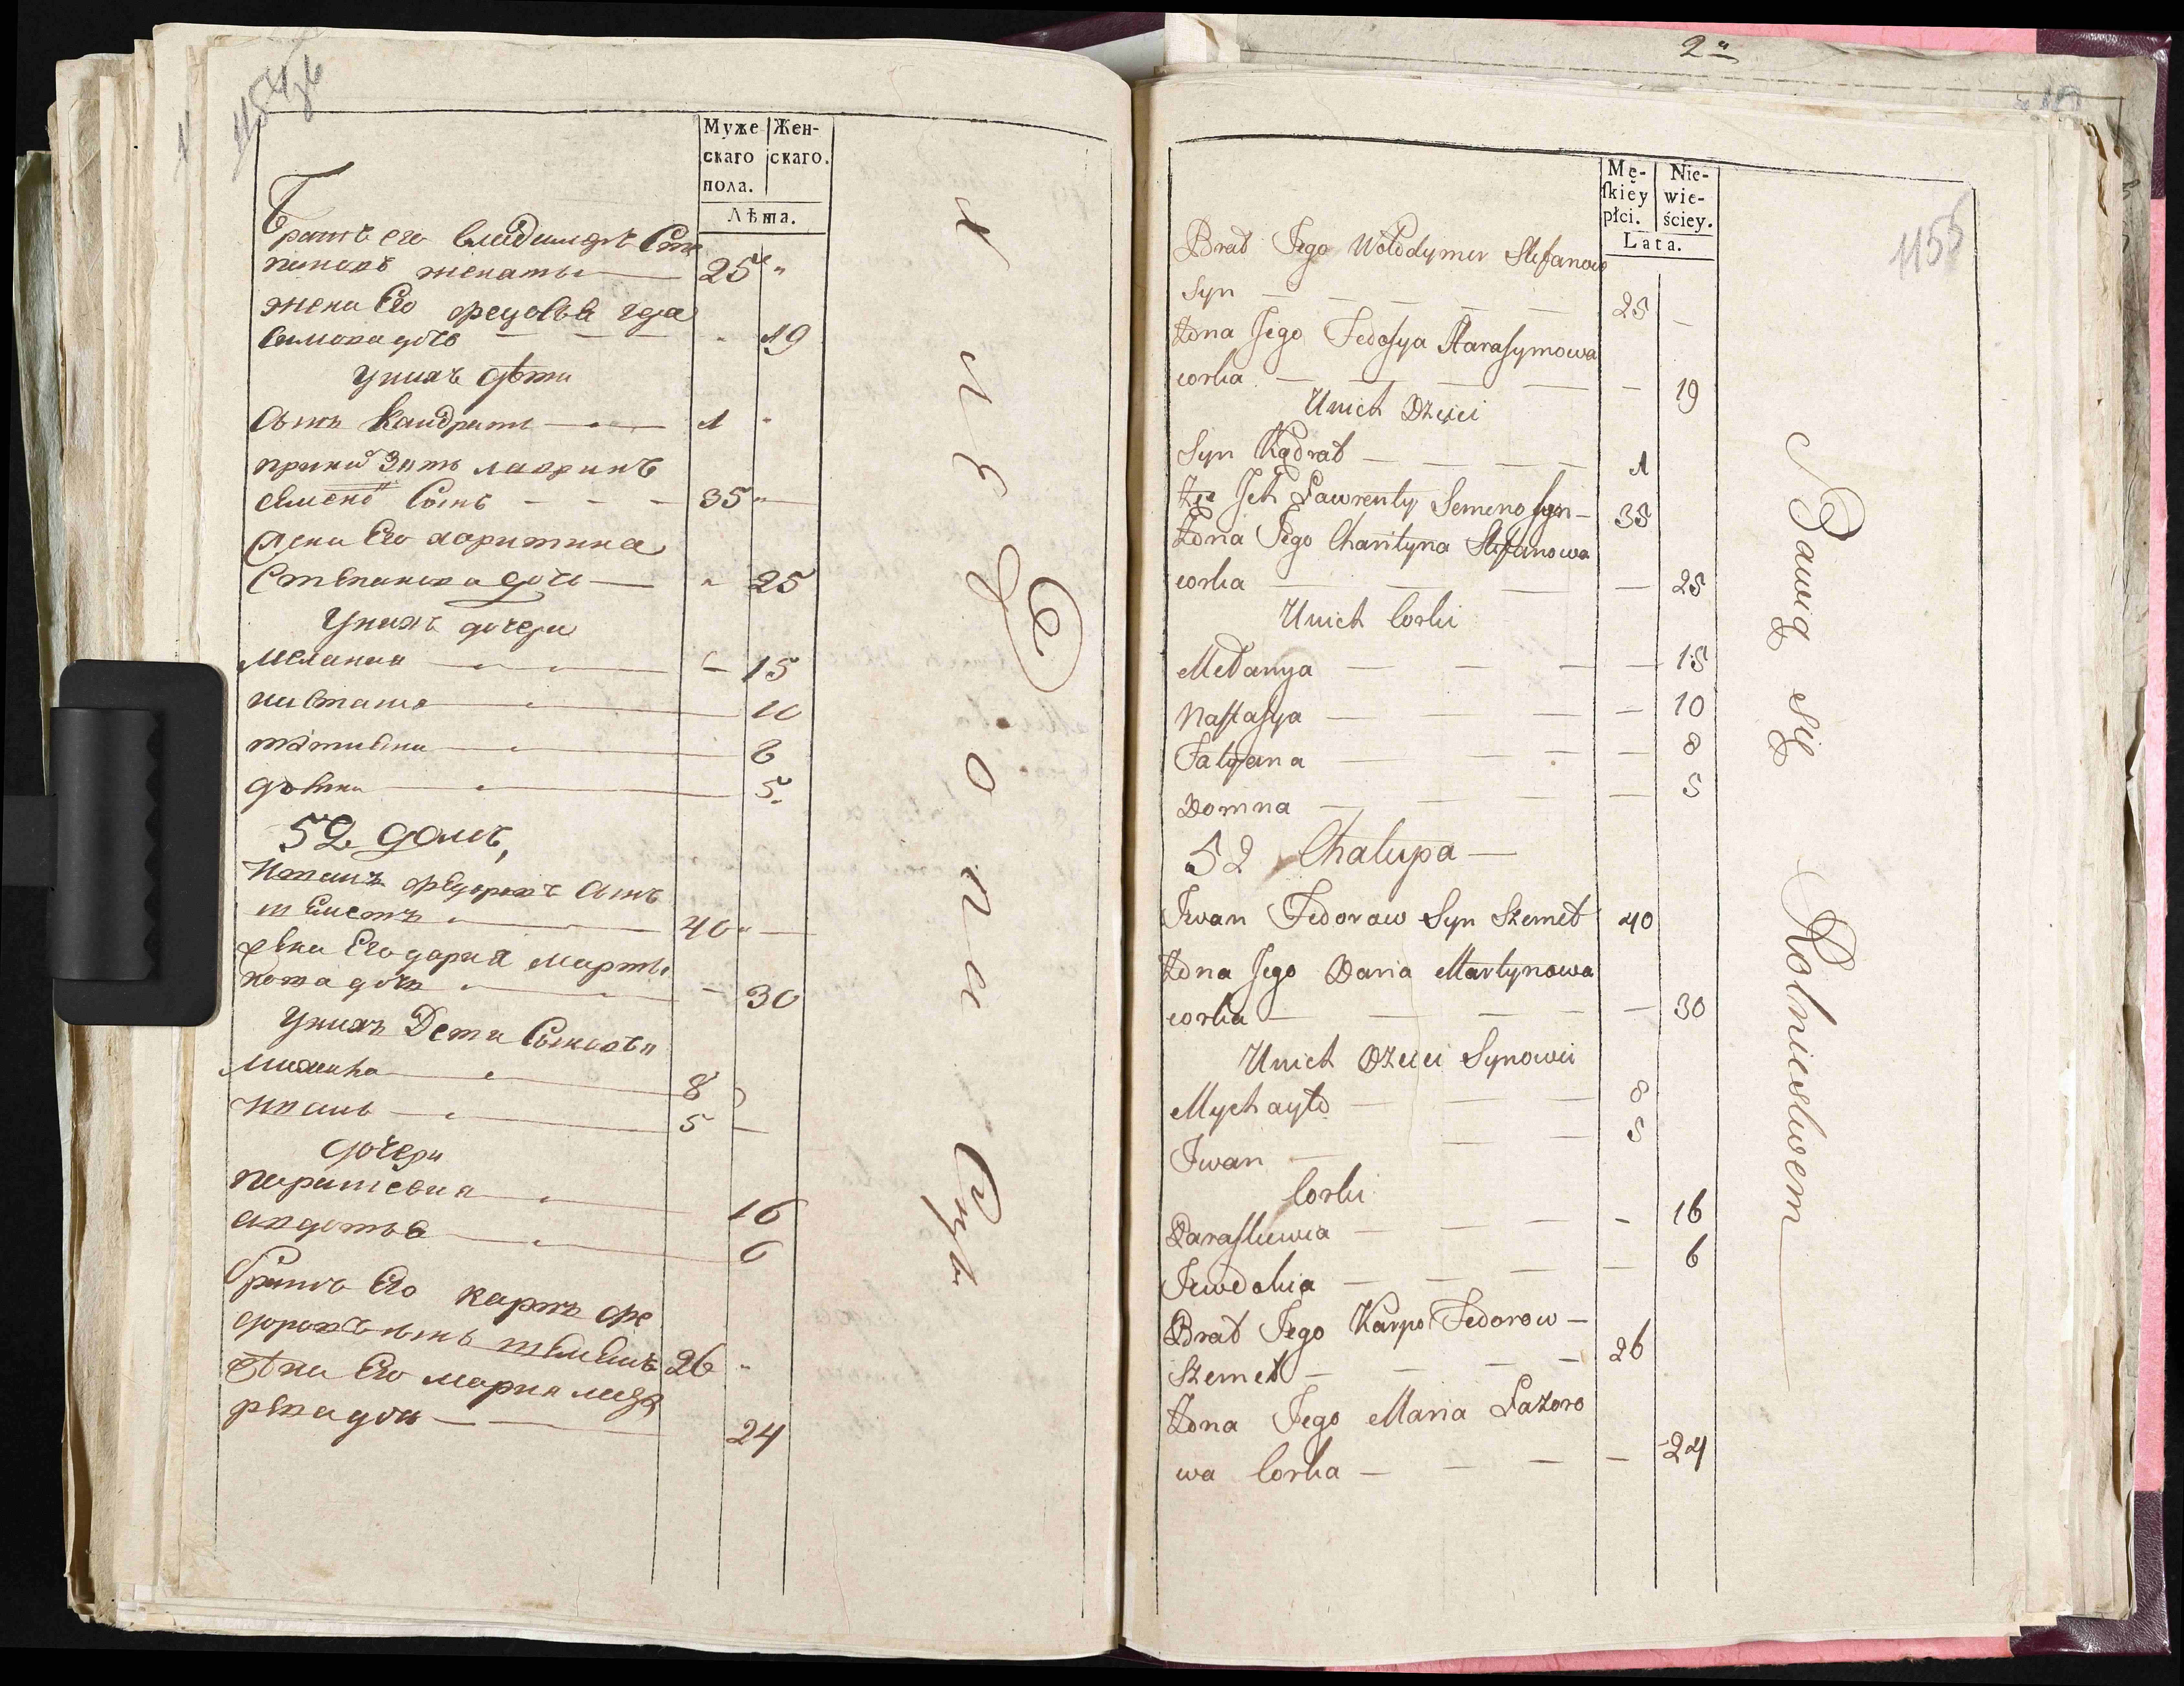 Муже- Жен-
скаго скаго.
пола.
Лѣта.
Братъ его владимиръ Сте
пановъ женатъ 25 "
жена Его федосья гара
симова дочь - - - " 19
Унихъ дѣти
Сынъ Кандратъ 1 "
35
жена Его харитина
Степанова дочь " 25
Унихъ дочери
мелания - 15
настасия 10
татияна 8
домна 5
52 домъ,
Иванъ федоровъ сынъ
шеметъ 40
жена Его дария марты
нова дочь - 30
Унихъ Дети Сыновья
михаила 8
иванъ 5
дочери
парасковия 16
авдотья 6
братъ Его карпъ фе
доровъ сынъ шеметъ 26 "
жена Его мария лаза
рева дочь 24
2я
1155
Mę- Nie-
skiey wie-
płci. ściey.
Lata.
Brat Jego Wołodymer Stefanow
Syn — — — — 25 —
Żona Jego Fedosya Harasymowa
corka — — — — — 19
Unich Dzieci
Syn Kądrat — — — — 1
Zęć Jch Ławrenty Semeno syn — 35
Żona Jego Charityna Stefanowa
corka — — — — 25
Unich Corki
Mełanya — — — — 15
Nastasya — — — — 10
Tatyana — — — 8
Domna — — — — 5
52 Chalupa —
Jwan Fedorow Syn Szemet 40
Żona Jego Daria Martynowa
corka — — — — — 30
Unich Dzieci Synowii
Mychayło — — — 8
Jwan — — — 5
Corki
Paraskiewia — — — - 16
Jewdokia — — — — 6
Brat Jego Karpo Fedorow —
Szemet — — — — 26
Żona Jego Maria Łazoro
wa Corka — — — — — 24
Bawią się Rolnictwem